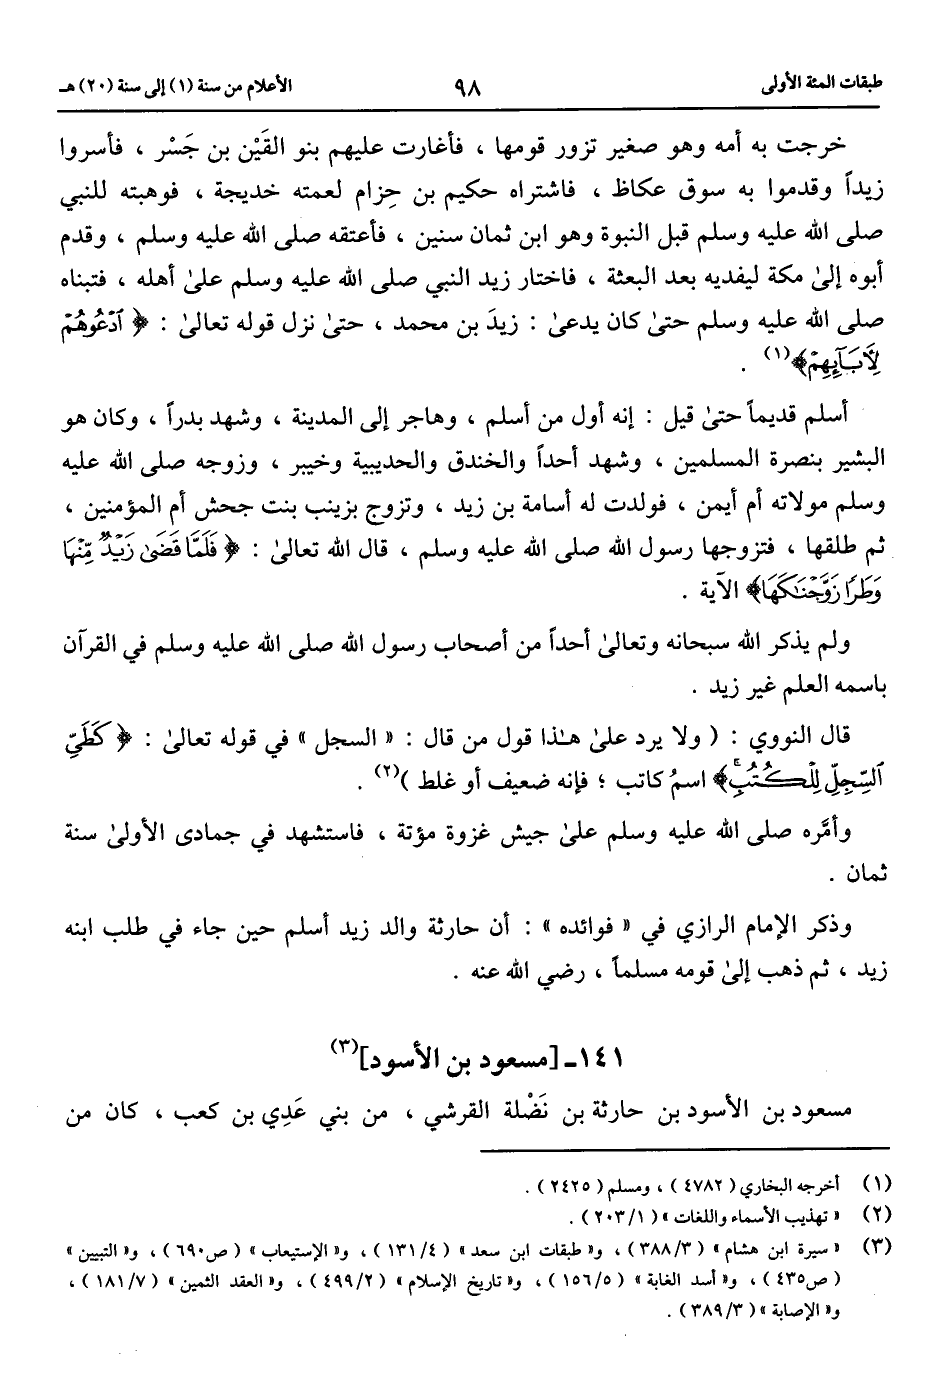 طبقات المئة الأولى ٩٨ الأعلام من سنة (١) إلى سنة (٢٠) هـ
خرجت به أمه وهو صغير تزور قومها ، فأغارت عليهم بنو القَيْن بن جَسْر ، فأسروا
زيداً وقدموا به سوق عكاظ ، فاشتراه حكيم بن حِزام لعمته خديجة ، فوهبته للنبي
صلى الله عليه وسلم قبل النبوة وهو ابن ثمان سنين ، فأعتقه صلى الله عليه وسلم ، وقدم
أبوه إلىٰ مكة ليفديه بعد البعثة ، فاختار زيد النبي صلى الله عليه وسلم علىٰ أهله ، فتبناه
صلى الله عليه وسلم حتىٰ كان يدعىٰ : زيدَ بن محمد ، حتىٰ نزل قوله تعالىٰ : ﴿ ٱدْعُوهُمْ
لِأَبَآئِهِمْ﴾(١) .
أسلم قديماً حتىٰ قيل : إنه أول من أسلم ، وهاجر إلى المدينة ، وشهد بدراً ، وكان هو
البشير بنصرة المسلمين ، وشهد أحداً والخندق والحديبية وخيبر ، وزوجه صلى الله عليه
وسلم مولاته أم أيمن ، فولدت له أسامة بن زيد ، وتزوج بزينب بنت جحش أم المؤمنين ،
ثم طلقها ، فتزوجها رسول الله صلى الله عليه وسلم ، قال الله تعالىٰ : ﴿ فَلَمَّا قَضَىٰ زَيْدٌ مِّنْهَا
وَطَرًا زَوَّجْنَٰكَهَا﴾ الآية .
ولم يذكر الله سبحانه وتعالىٰ أحداً من أصحاب رسول الله صلى الله عليه وسلم في القرآن
باسمه العلم غير زيد .
قال النووي : ( ولا يرد علىٰ هٰذا قول من قال : « السجل » في قوله تعالىٰ : ﴿ كَطَيِّ
ٱلسِّجِلِّ لِلْكُتُبِ ۚ﴾ اسمُ كاتب ؛ فإنه ضعيف أو غلط )(٢) .
وأمَّره صلى الله عليه وسلم علىٰ جيش غزوة مؤتة ، فاستشهد في جمادى الأولىٰ سنة
ثمان .
وذكر الإمام الرازي في « فوائده » : أن حارثة والد زيد أسلم حين جاء في طلب ابنه
زيد ، ثم ذهب إلىٰ قومه مسلماً ، رضي الله عنه .
١٤١ـ [مسعود بن الأسود](٣)
مسعود بن الأسود بن حارثة بن نَضْلة القرشي ، من بني عَدِي بن كعب ، كان من
(١) أخرجه البخاري ( ٤٧٨٢ ) ، ومسلم ( ٢٤٢٥ ) .
(٢) « تهذيب الأسماء واللغات » ( ٢٠٣/١ ) .
(٣) « سيرة ابن هشام » ( ٣٨٨/٣ ) ، و« طبقات ابن سعد » ( ١٣١/٤ ) ، و« الإستيعاب » ( ص٦٩٠ ) ، و« التبيين »
( ص٤٣٥ ) ، و« أسد الغابة » ( ١٥٦/٥ ) ، و« تاريخ الإسلام » ( ٤٩٩/٢ ) ، و« العقد الثمين » ( ١٨١/٧ ) ،
و« الإصابة » ( ٣٨٩/٣ ) .